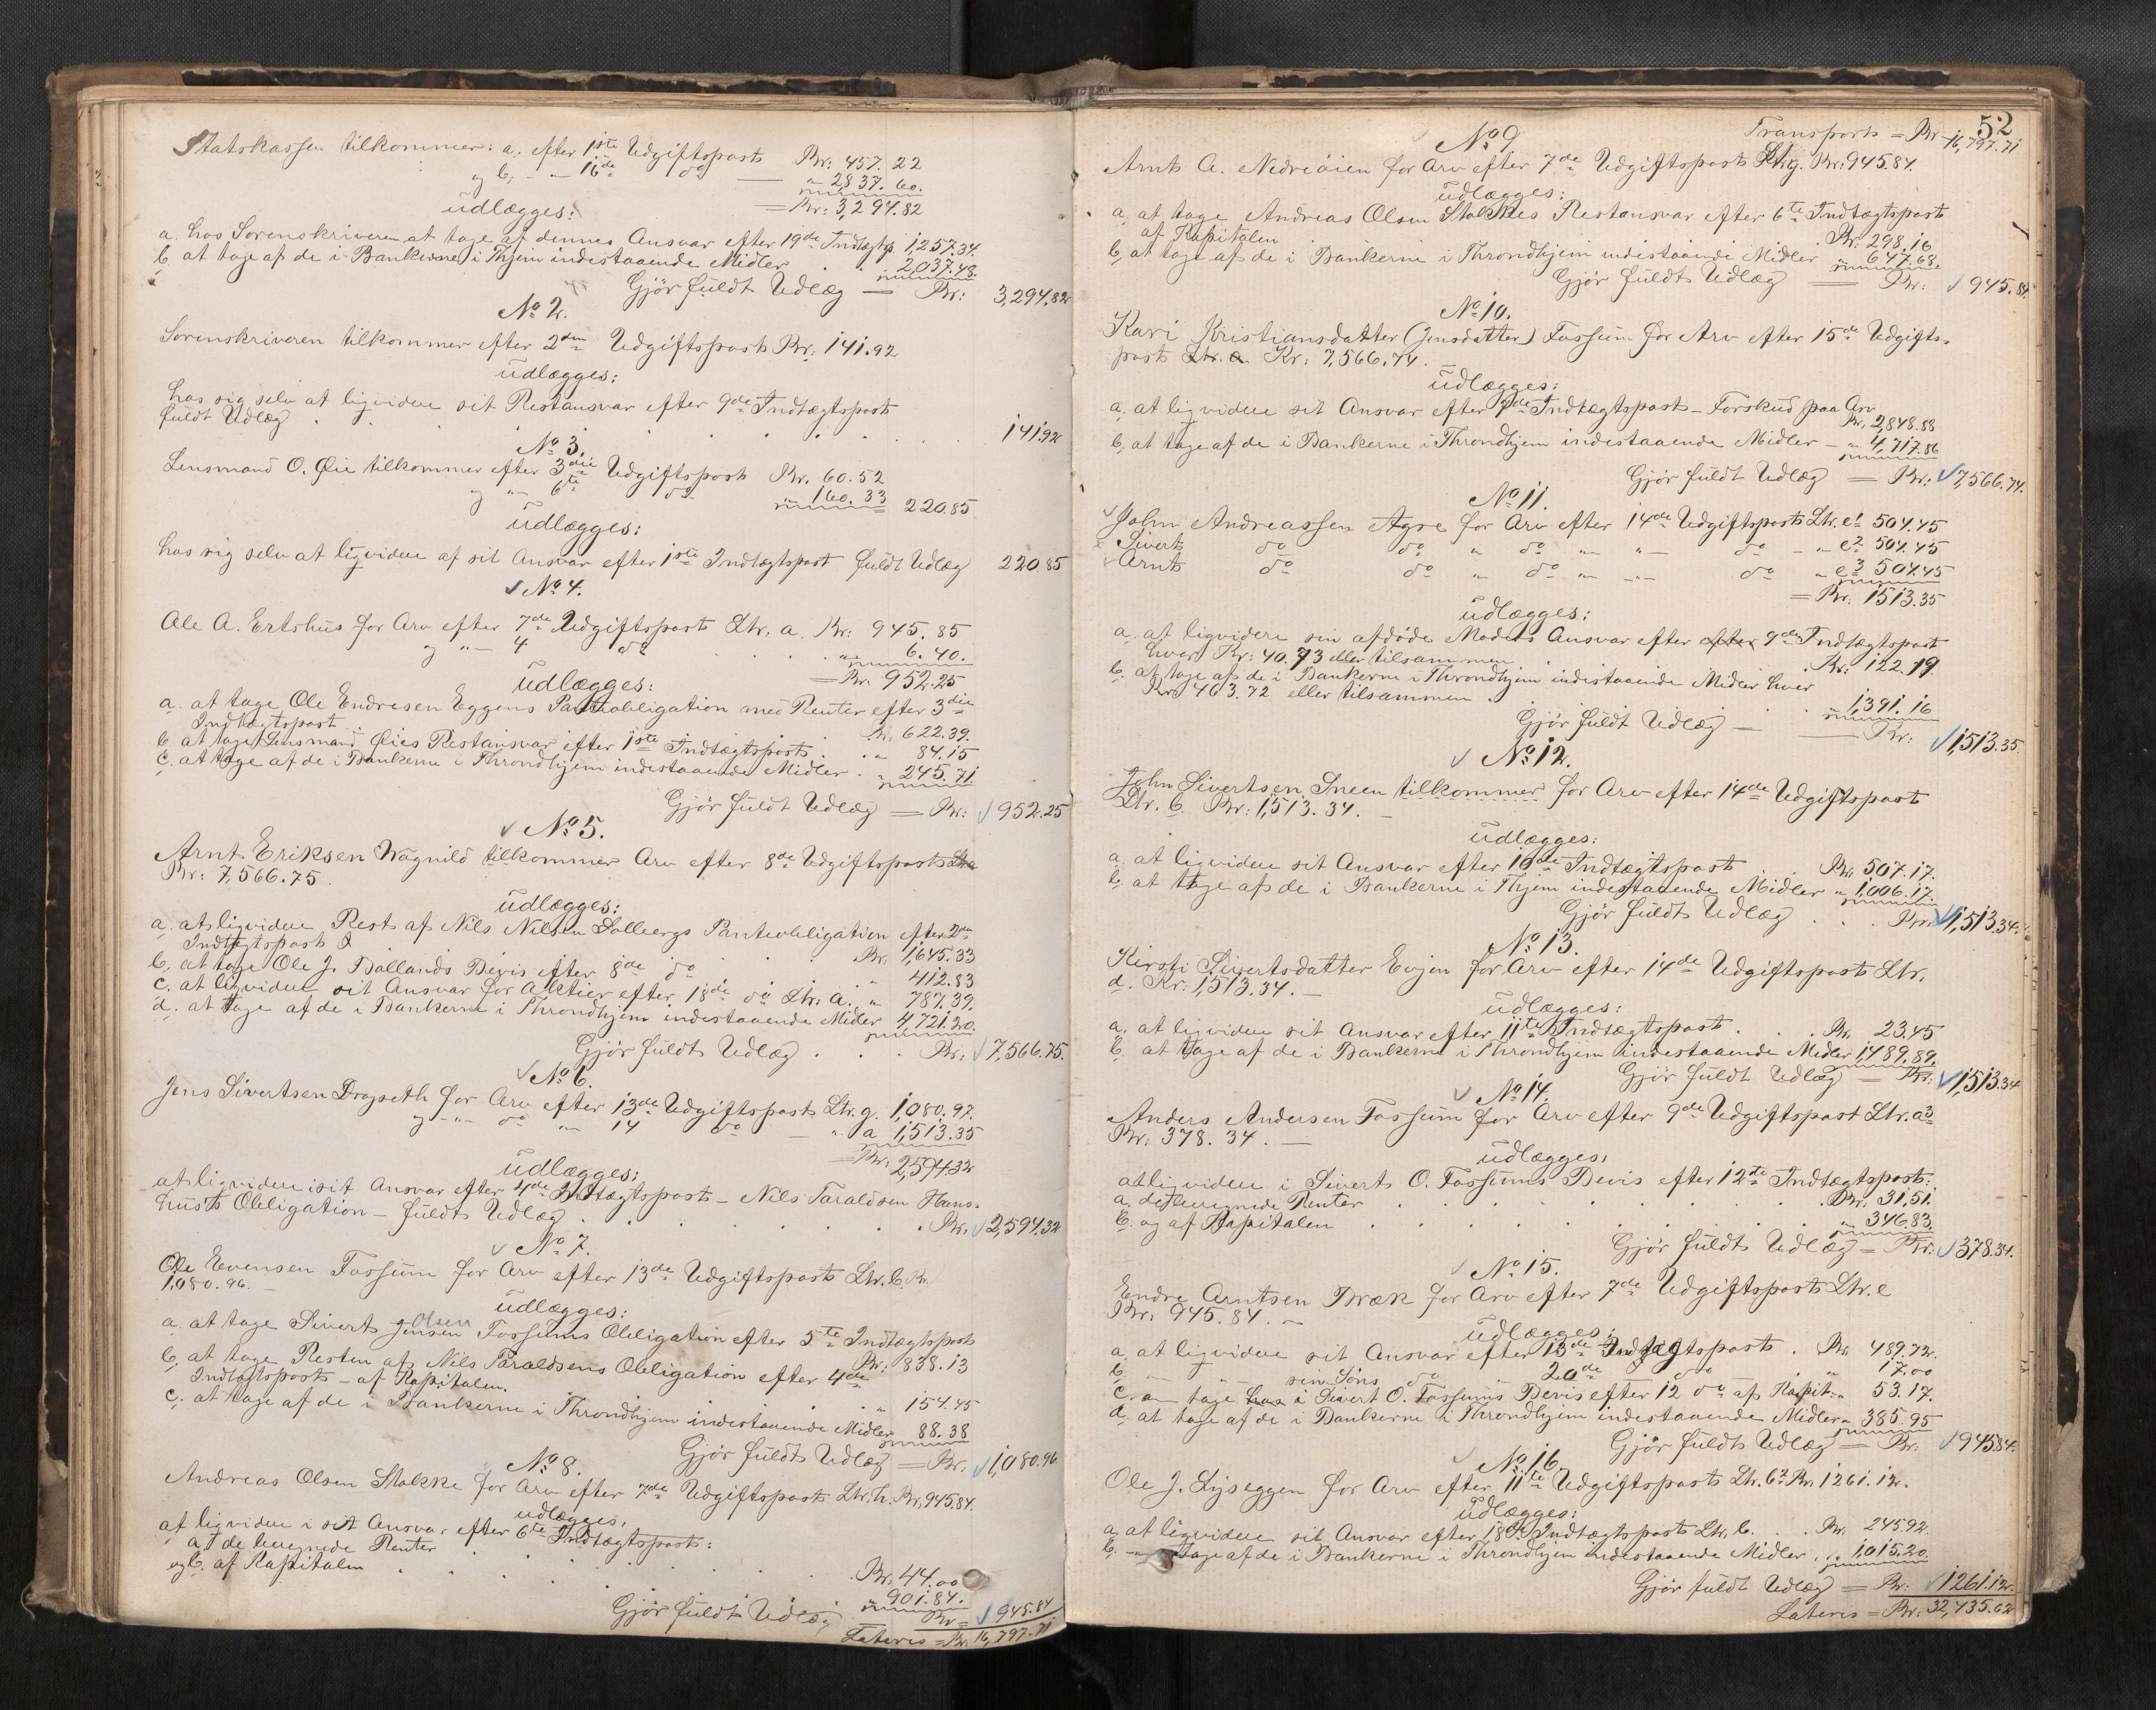 Statskassen tilkommer: a. efter 1ste Udgiftspost Kr: 457.22
og b, - " 16de do — " 2837.60.
= Kr: 3,294.82
udlægges:
a. hos Sorenskriveren at tage af dennes Ansvar efter 19de Indtægtsp. 1,257.34.
b at tage af de i Bankerne i Thjem indestaaende Midler . . " 2,037.48.
Gjør fuldt Udlæg — Kr: 3,294.82
No 2.
Sorenskriveren tilkommer efter 2den Udgiftspost Kr: 141.92
udlægges:
hos sig selv at liqvidere sit Restansvar efter 9de Indtægtspost
fuldt Udlæg . . . . . . 141.92
No 3.
Lensmand O. Øie tilkommer efter 3die Udgiftspost Kr. 60.52
og " 6te do " 160.33 220.85
udlægges:
hos sig selv at liqvidere af sit Ansvar efter 1ste Indtægtspost fuldt Udlæg 220.85
No 4.
Ole A. Ertshus for Arv efter 7de Udgiftspost Ltr. a. Kr: 945.85
og " 4 do . . . " 6.40.
= Kr. 952.25
udlægges:
a. at tage Ole Endresen Eggens Panteobligation med Renter efter 3die
Indtægtspost . . . Kr. 622.39.
b. at tage Lensmand Øies Restansvar efter 1ste Indtægtspost . " 84.15
c. at tage af de i Bankerne i Throndhjem indestaaende Midler . " 245.71.
Gjør fuldt Udlæg = Kr: 952.25
No 5.
Arnt Eriksen Wagnild tilkommer Arv efter 8de Udgiftspost
Kr: 7,566.75.
udlægges:
a. at liqvidere Rest af Nils Nilsen Solbergs Panteobligation efter 2den
Indtægtspost . . . Kr. 1,645.33
b, at tage Ole J. Dallands Bevis efter 8de do . . " 412.83
c. at liqvidere sit Ansvar for Aktier efter 18de do Ltr. a. " 787.39.
d. at tage af de i Bankerne i Throndhjem indestaaende Midler 4,721.20.
Gjør fuldt Udlæg . . . Kr. 7,566.75.
No 6.
Jens Sivertsen Drogseth for Arv efter 13de Udgiftspost Ltr. g. 1,080.97.
og " do " 14 do — " a 1,513.35
= Kr. 2,594.32
udlægges:
at liqvidere i sit Ansvar efter 4de Indtægtspost – Nils Taraldsen Hans-
husts Obligation – fuldt Udlæg . . . . Kr. 2,594.32
No 7.
Ole Evensen Fossum for Arv efter 13de Udgiftspost Ltr. b. Kr.
1,080.96. –
udlægges:
Olsen
a. at tage Sivert Jensen Fossums Obligation efter 5te Indtægtspost
Kr: 838.13
b, at tage Resten af Nils Taraldsens Obligation efter 4de
Indtægtspost – af Kapitalen. . . " 154.45
c. at tage af de i Bankerne i Throndhjem indestaaende Midler 88.38
Gjør fuldt Udlæg = Kr. 1,080.96
No 8.
Andreas Olsen Stokke for Arv efter 7de Udgiftspost Ltr. h. Kr. 945.84.
udlægges,
at liqvidere i sit Ansvar efter 6te Indtægtspost:
a, de beregnede Renter . . . . Kr. 44.00
og b. af Kapitalen . . . . " 901.84.
Gjør fuldt Udlæg Kr = 945.84
Lateris = Kr. 16,797.71
52
Transport = Kr 16,797.71
No 9
Arnt A. Nedreøien for Arv efter 7de Udgiftspost Ltr. g. Kr: 945.84.
udlægges:
a. at tage Andreas Olsen Stokkes Restansvar efter 6te Indtægtspost
af Kapitalen . Kr. 298.16
b, at tage af de i Bankerne i Throndhjem indestaaende Midler " 647.68.
Gjør fuldt Udlæg — Kr: 945.84.
No 10.
Kari Kristiansdatter (Jensdatter) Fossum for Arv efter 15de Udgifts-
post Ltr. a. Kr: 7,566.74. –
udlægges:
a. at liqvidere sit Ansvar efter 7de Indtægtspost – Forskud paa Arv
Kr. 2,848.88
b, at tage af de i Bankerne i Throndhjem indestaaende Midler – " 4,717.86
Gjør fuldt Udlæg = Kr: 7,566.74.
No 11.
John Andreassen Agre for Arv efter 14de Udgiftspost Ltr. e1 504.45
Sivert do do " do " " do " e2 504.45
Arnt do do " do " " do " e3 504.45
= Kr: 1513.35
udlægges:
a. at liqvidere sin afdøde Moders Ansvar efter efter 9de Indtægtspost
hver Kr: 40.73 eller tilsammen . Kr: 122.19.
b. at tage af de i Bankerne i Throndhjem indestaaende Midler hver
Kr. 463.72 eller tilsammen . . " 1,391.16
Gjør fuldt Udlæg — Kr: 1,513.35.
No 12.
John Sivertsen Sneen tilkommer for Arv efter 14de Udgiftspost
Ltr. b. Kr: 1,513.34. –
udlægges:
a. at liqvidere sit Ansvar efter 10de Indtægtspost . Kr. 507.17.
b, at tage af de i Bankerne i Thjem indestaaende Midler " 1,006.17.
Gjør fuldt Udlæg . . Kr. 1,513.34.
No 13.
Kirsti Sivertsdatter Evjen for Arv efter 14de Udgiftspost Ltr.
d. Kr: 1,513.34. –
udlægges:
a. at liqvidere sit Ansvar efter 11te Indtægtspost . . . Kr. 23.45
b. at tage af de i Bankerne i Throndhjem indestaaende Midler 1,489.89.
Gjør fuldt Udlæg — Kr: 1,513.34
No 14.
Anders Andersen Fossum for Arv efter 9de Udgiftspost Ltr. a3
Kr. 378.34. –
udlægges,
at liqvidere i Sivert O. Fossums Bevis efter 12te Indtægtspost:
a. de beregnede Renter . . . . Kr. 31.51.
b. og af Kapitalen . . . . " 346.83.
Gjør fuldt Udlæg = Kr: 378.34.
No 15.
Endre Arntsen Bræk for Arv efter 7de Udgiftspost Ltr. e
Kr. 945.84. –
udlægges:
a, at liqvidere sit Ansvar efter 13de Indtægtspost . Kr. 489.72.
b, " " sin Søns do 20de do . " 17.00
c. " tage hos i Sivert O. Fossums Bevis efter 12 do af Kapit. " 53.17.
d, at tage af de i Bankerne i Throndhjem indestaaende Midler " 385.95
Gjør fuldt Udlæg = Kr. 945.84.
No 16.
Ole J. Lyseggen for Arv efter 11te Udgiftspost Ltr. b2 Kr. 1261.12.
udlægges:
a, at liqvidere sit Ansvar efter 18de Indtægtspost Ltr. b. . . Kr. 245.92.
b. " tage af de i Bankerne i Throndhjem indestaaende Midler . " 1,015.20.
Gjør fuldt Udlæg = Kr: 1261.12.
Lateris = Kr. 32,435.62